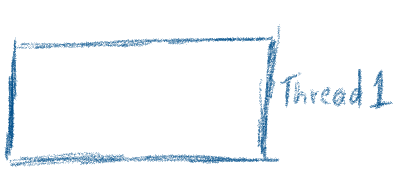 Thread 1